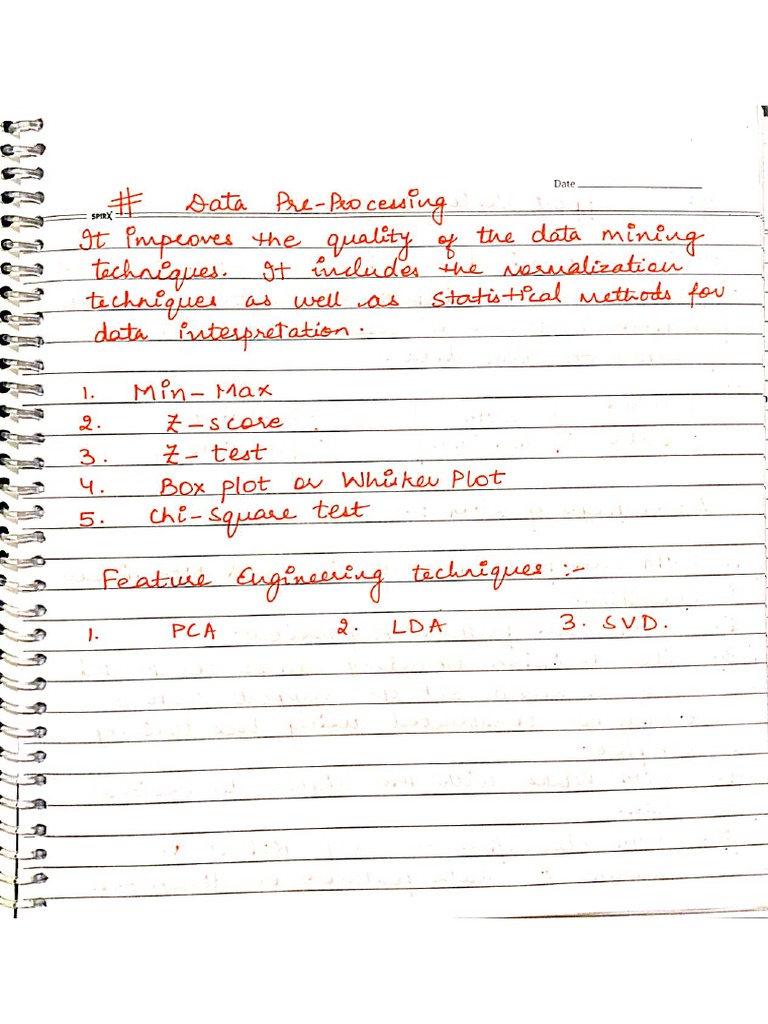 Date
SPIRX
# Data Pre-Processing
It improves the quality of the data mining
techniques. It includes the normalization
techniques as well as statistical methods for
data interpretation.
1. Min-Max
2. Z-score
3. Z-test
4. Box plot or Whisker Plot
5. Chi-Square test
Feature Engineering techniques :-
1. PCA 2. LDA 3. SVD.